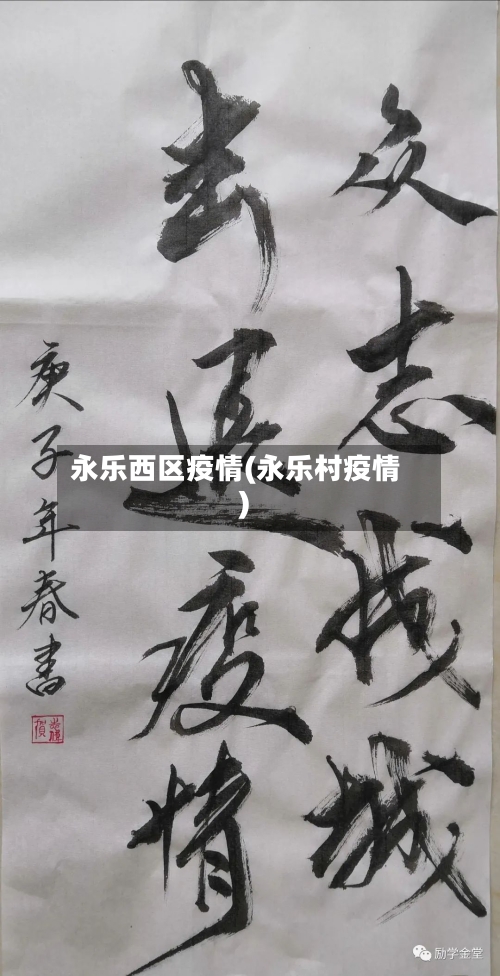 众志成城
击退疫情
庚子年春书
永乐西区疫情(永乐村疫情
)
励学金堂